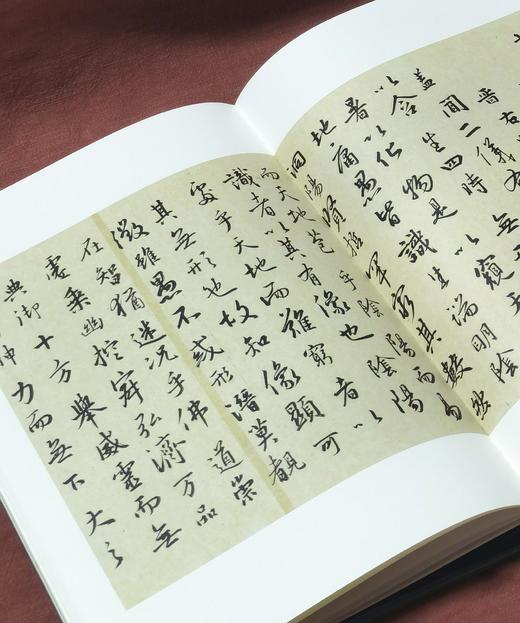 晉右
蓋聞二儀有
以含生四時無
暑以化物是以窺天
地庸愚皆識其端明陰
洞陽賢哲罕窮其數然
而天地苞乎陰陽而易
識者以其有像也陰陽
處乎天地而難窮者以
其無形也故知像顯可
徵雖愚不惑形潛莫覩
在智猶迷況乎佛道崇
虛乘幽控寂弘濟万品
典御十方舉威靈而無
神力而無下大之